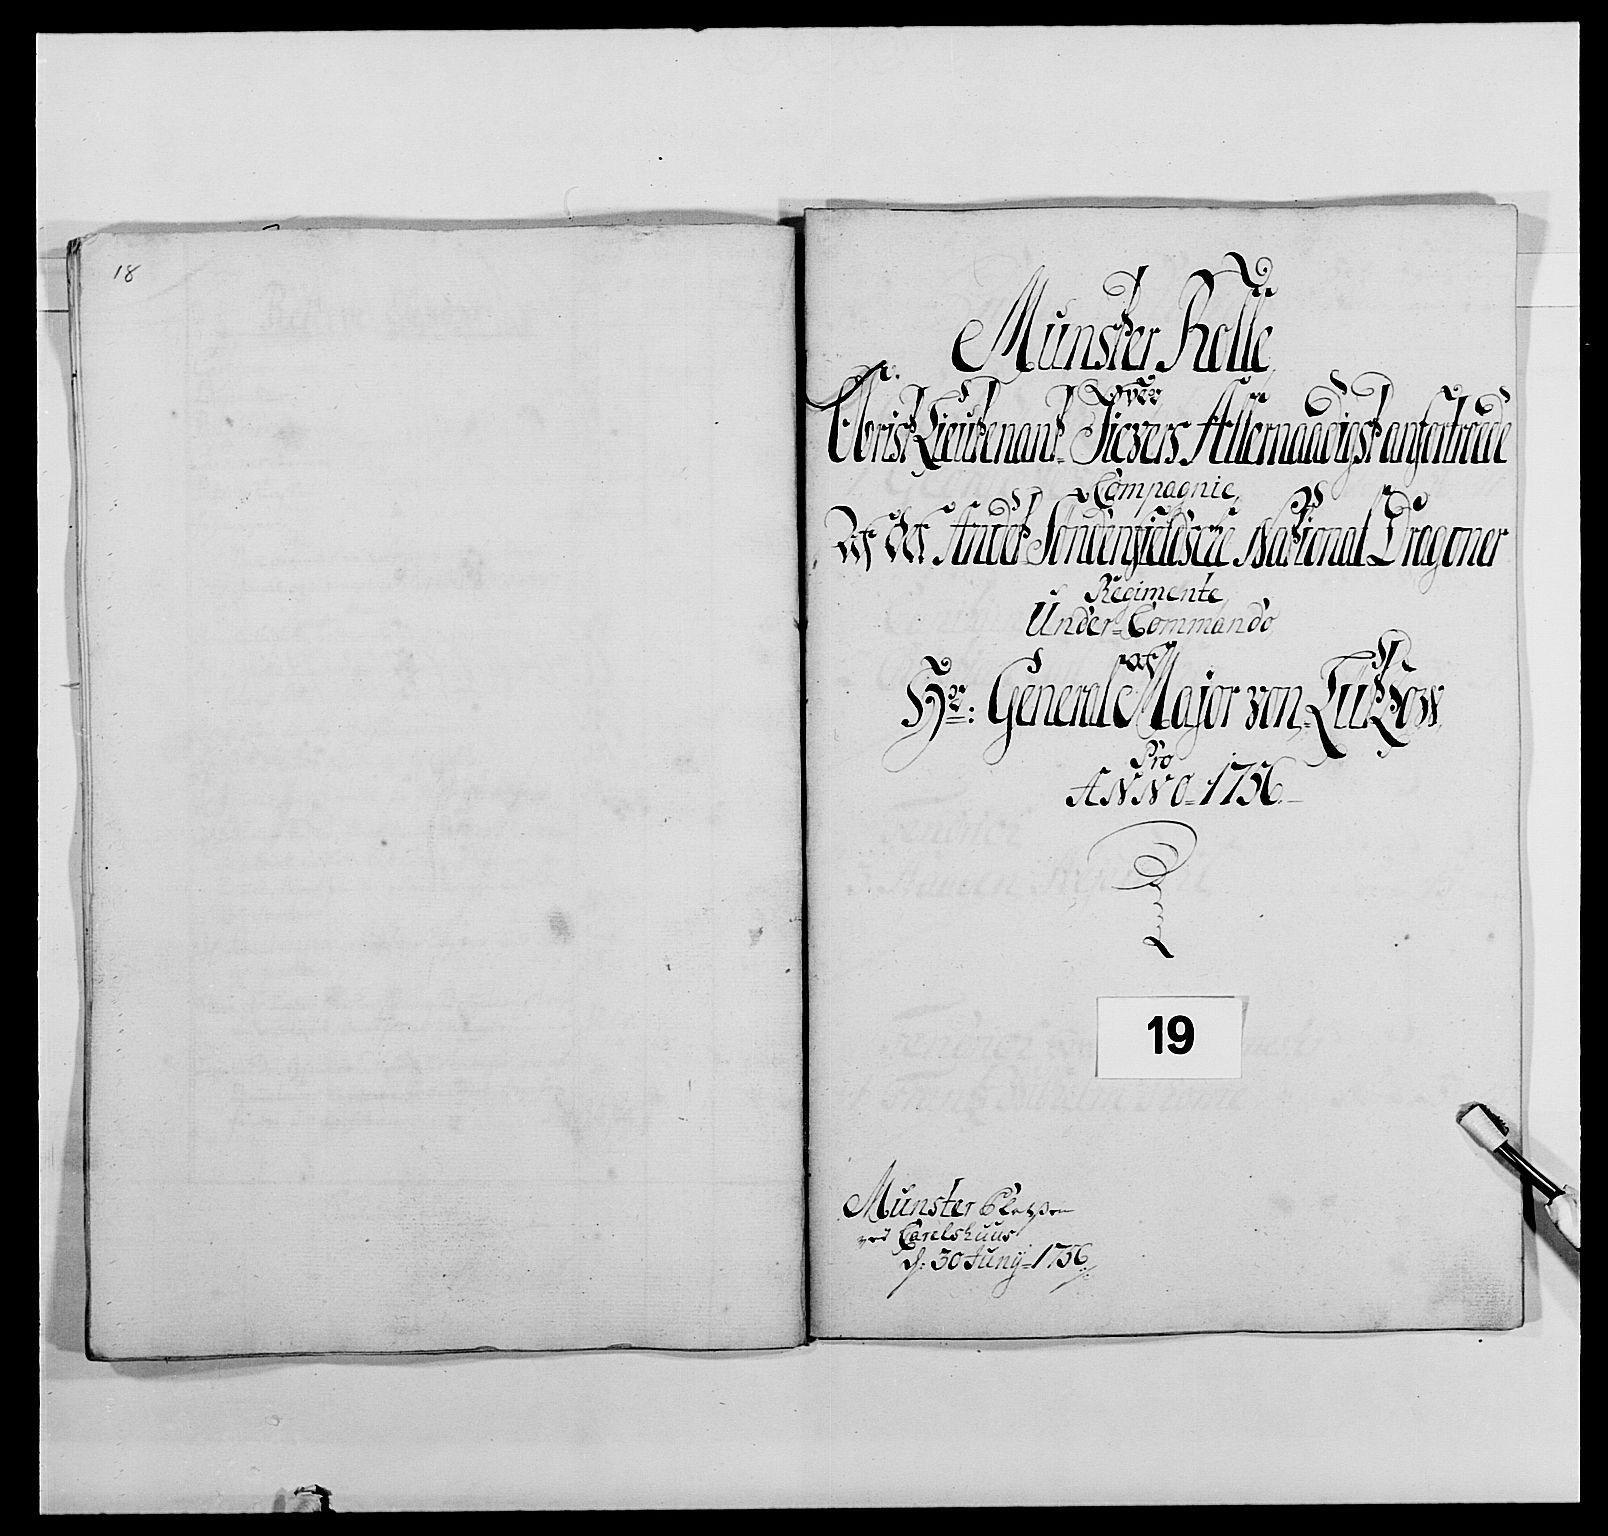 18
Munster Rolle
Over
Obrist Lieutenant Sievers Allernaadigst anfortroede
Compagnie,
Af Det Andet Söndenfieldsche National Dragoner
Regimente,
Under Commando
af
Hr: General Major von Lützow,
Pro
ANNO 1756.
19
Munster Pladsen
ved Carelshuus
d: 30 Juny 1756